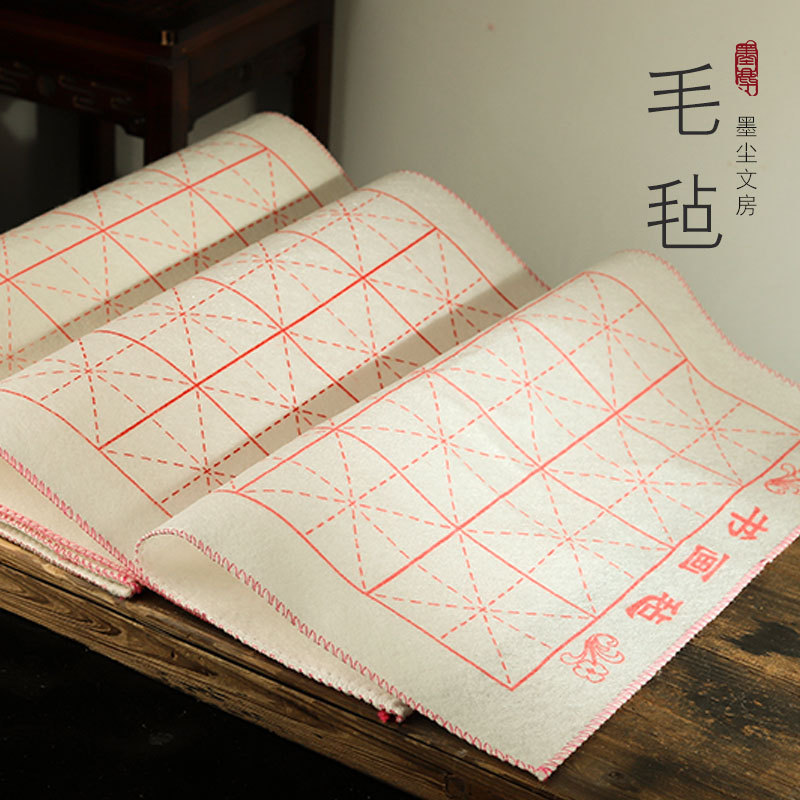 毛毡
墨尘文房
书画毡